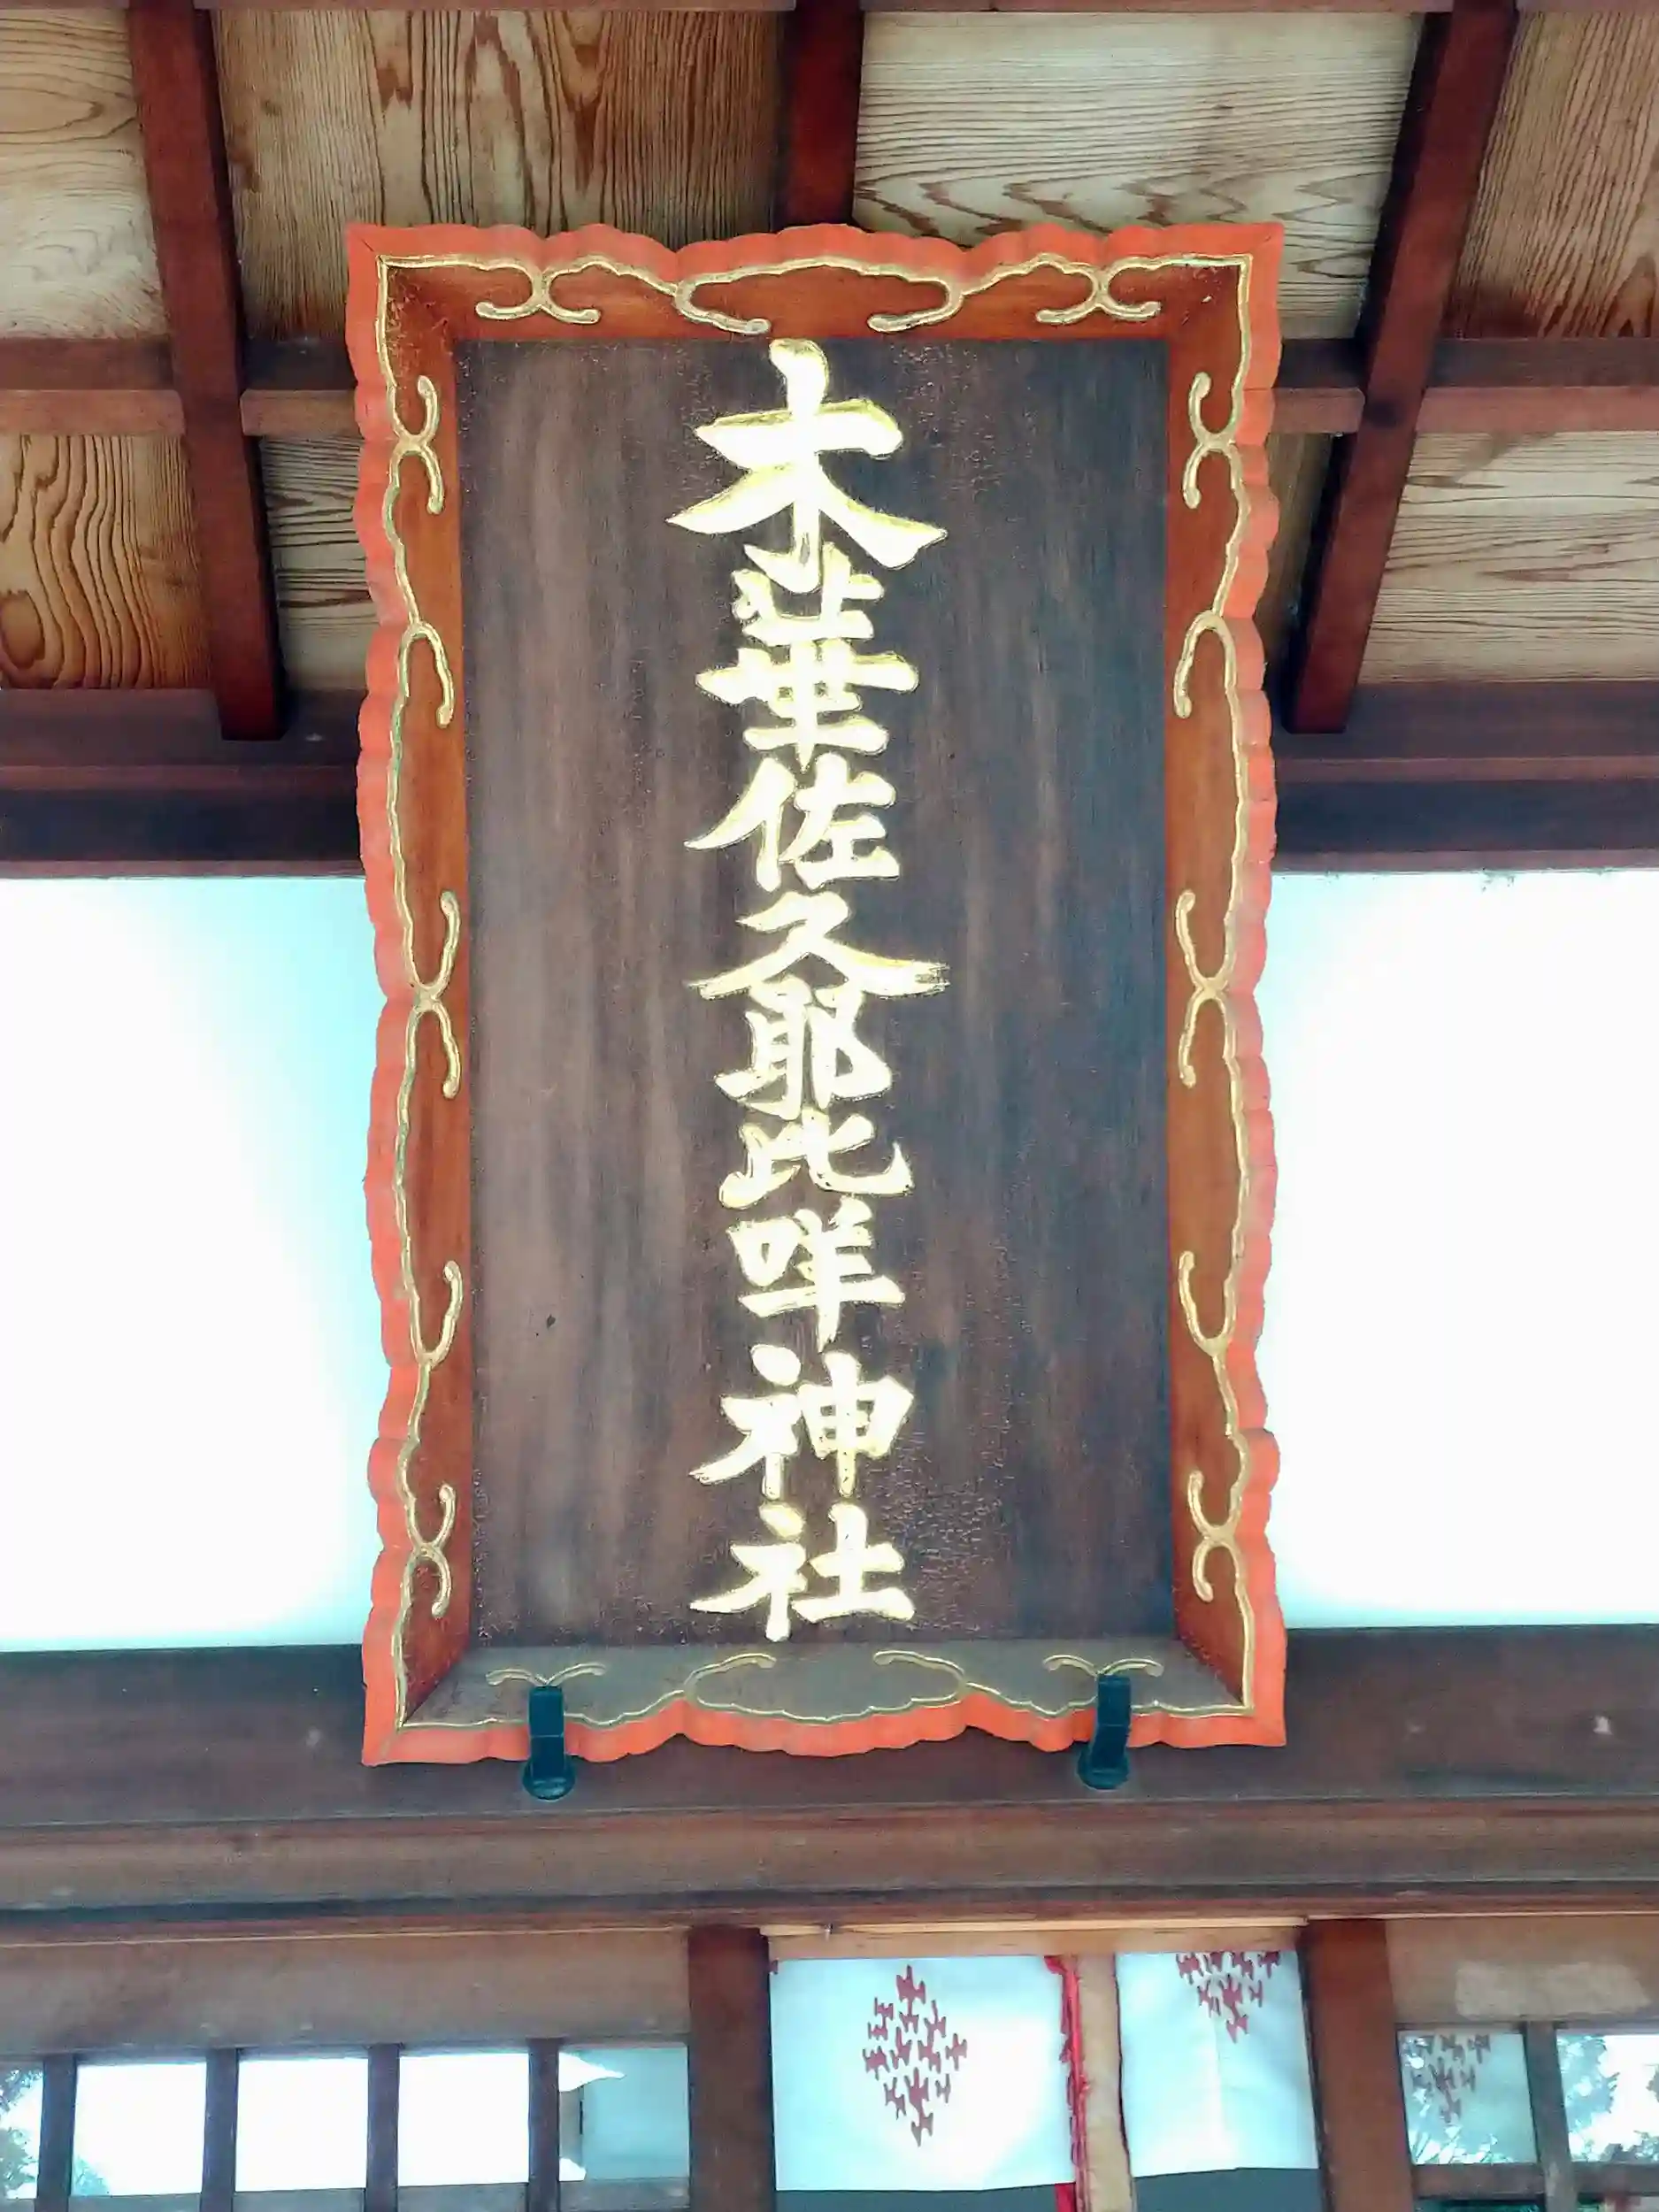 木華佐久耶比咩神社